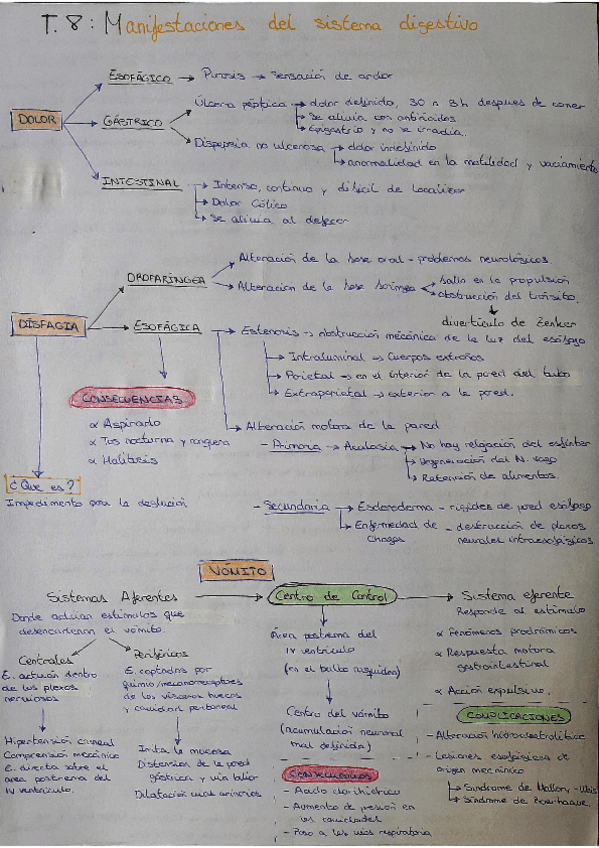 T.8: Manifestaciones del sistema digestivo
DOLOR
ESOFÁGICO → Pirosis → Sensación de ardor
GÁSTRICO
Úlcera péptica → dolor definido, 30 n 3h despues de comer
→ Se alivia con antiácidos
→ Epigastrio y no se irradia.
Dispepsia no ulcerosa → dolor indefinido
→ anormalidad en la motilidad y vaciamiento
INTESTINAL → Intenso, continuo y difícil de localizar
→ Dolor Cólico
→ Se alivia al defecar
DISFAGIA
OROFARÍNGEA
Alteración de la fase oral - problemas neurológicos
Alteración de la fase faríngea → fallo en la propulsión
→ obstrucción del tránsito.
divertículo de Zenker
ESOFÁGICA → Estenosis → obstrucción mecánica de la luz del esófago
→ Intraluminal → Cuerpos extraños
→ Parietal → en el interior de la pared del tubo
→ Extraparietal → exterior a la pared.
→ Alteración motora de la pared
- Primaria → Acalasia → No hay relajación del esfínter
→ Degeneración del N. vago
→ Retención de alimentos.
- Secundaria → Esclerodermia - rigidez de pared esófago
→ Enfermedad de Chagas - destrucción de plexos
neurales intraesofágicos
CONSECUENCIAS
α Aspirado
α Tos nocturna y ronquera
α Halitosis
¿Que es?
Impedimento para la deglución
VÓMITO
Sistemas Aferentes
Donde actúan estímulos que
desencadenan el vómito.
Centrales
E. actúan dentro
de los plexos
nerviosos
Hipertensión craneal
Compresión mecánica
E. directa sobre el
area postrema del
IV ventrículo.
Periféricos
E. captados por
quimio/mecanorreceptores
de las vísceras huecas
y cavidad peritoneal
Irrita la mucosa
Distensión de la pared
gástrica y vía biliar
Dilatación vías urinarias
Centro de Control
Área postrema del
IV ventrículo
(en el bulbo raquídeo)
Centro del vómito
(acumulación neuronal
mal definida)
CONSECUENCIAS
- Acido clorhídrico
- Aumento de presión en
las cavidades
- Paso a las vías respiratoria
Sistema eferente
Responde al estímulo
α Fenómenos prodrómicos
α Respuesta motora
gastrointestinal
α Acción expulsiva.
COMPLICACIONES
- Alteración hidroelectrolítica
- Lesiones esofágicas de
origen mecánico
→ Síndrome de Mallory-Weis
→ Síndrome de Boerhaave.